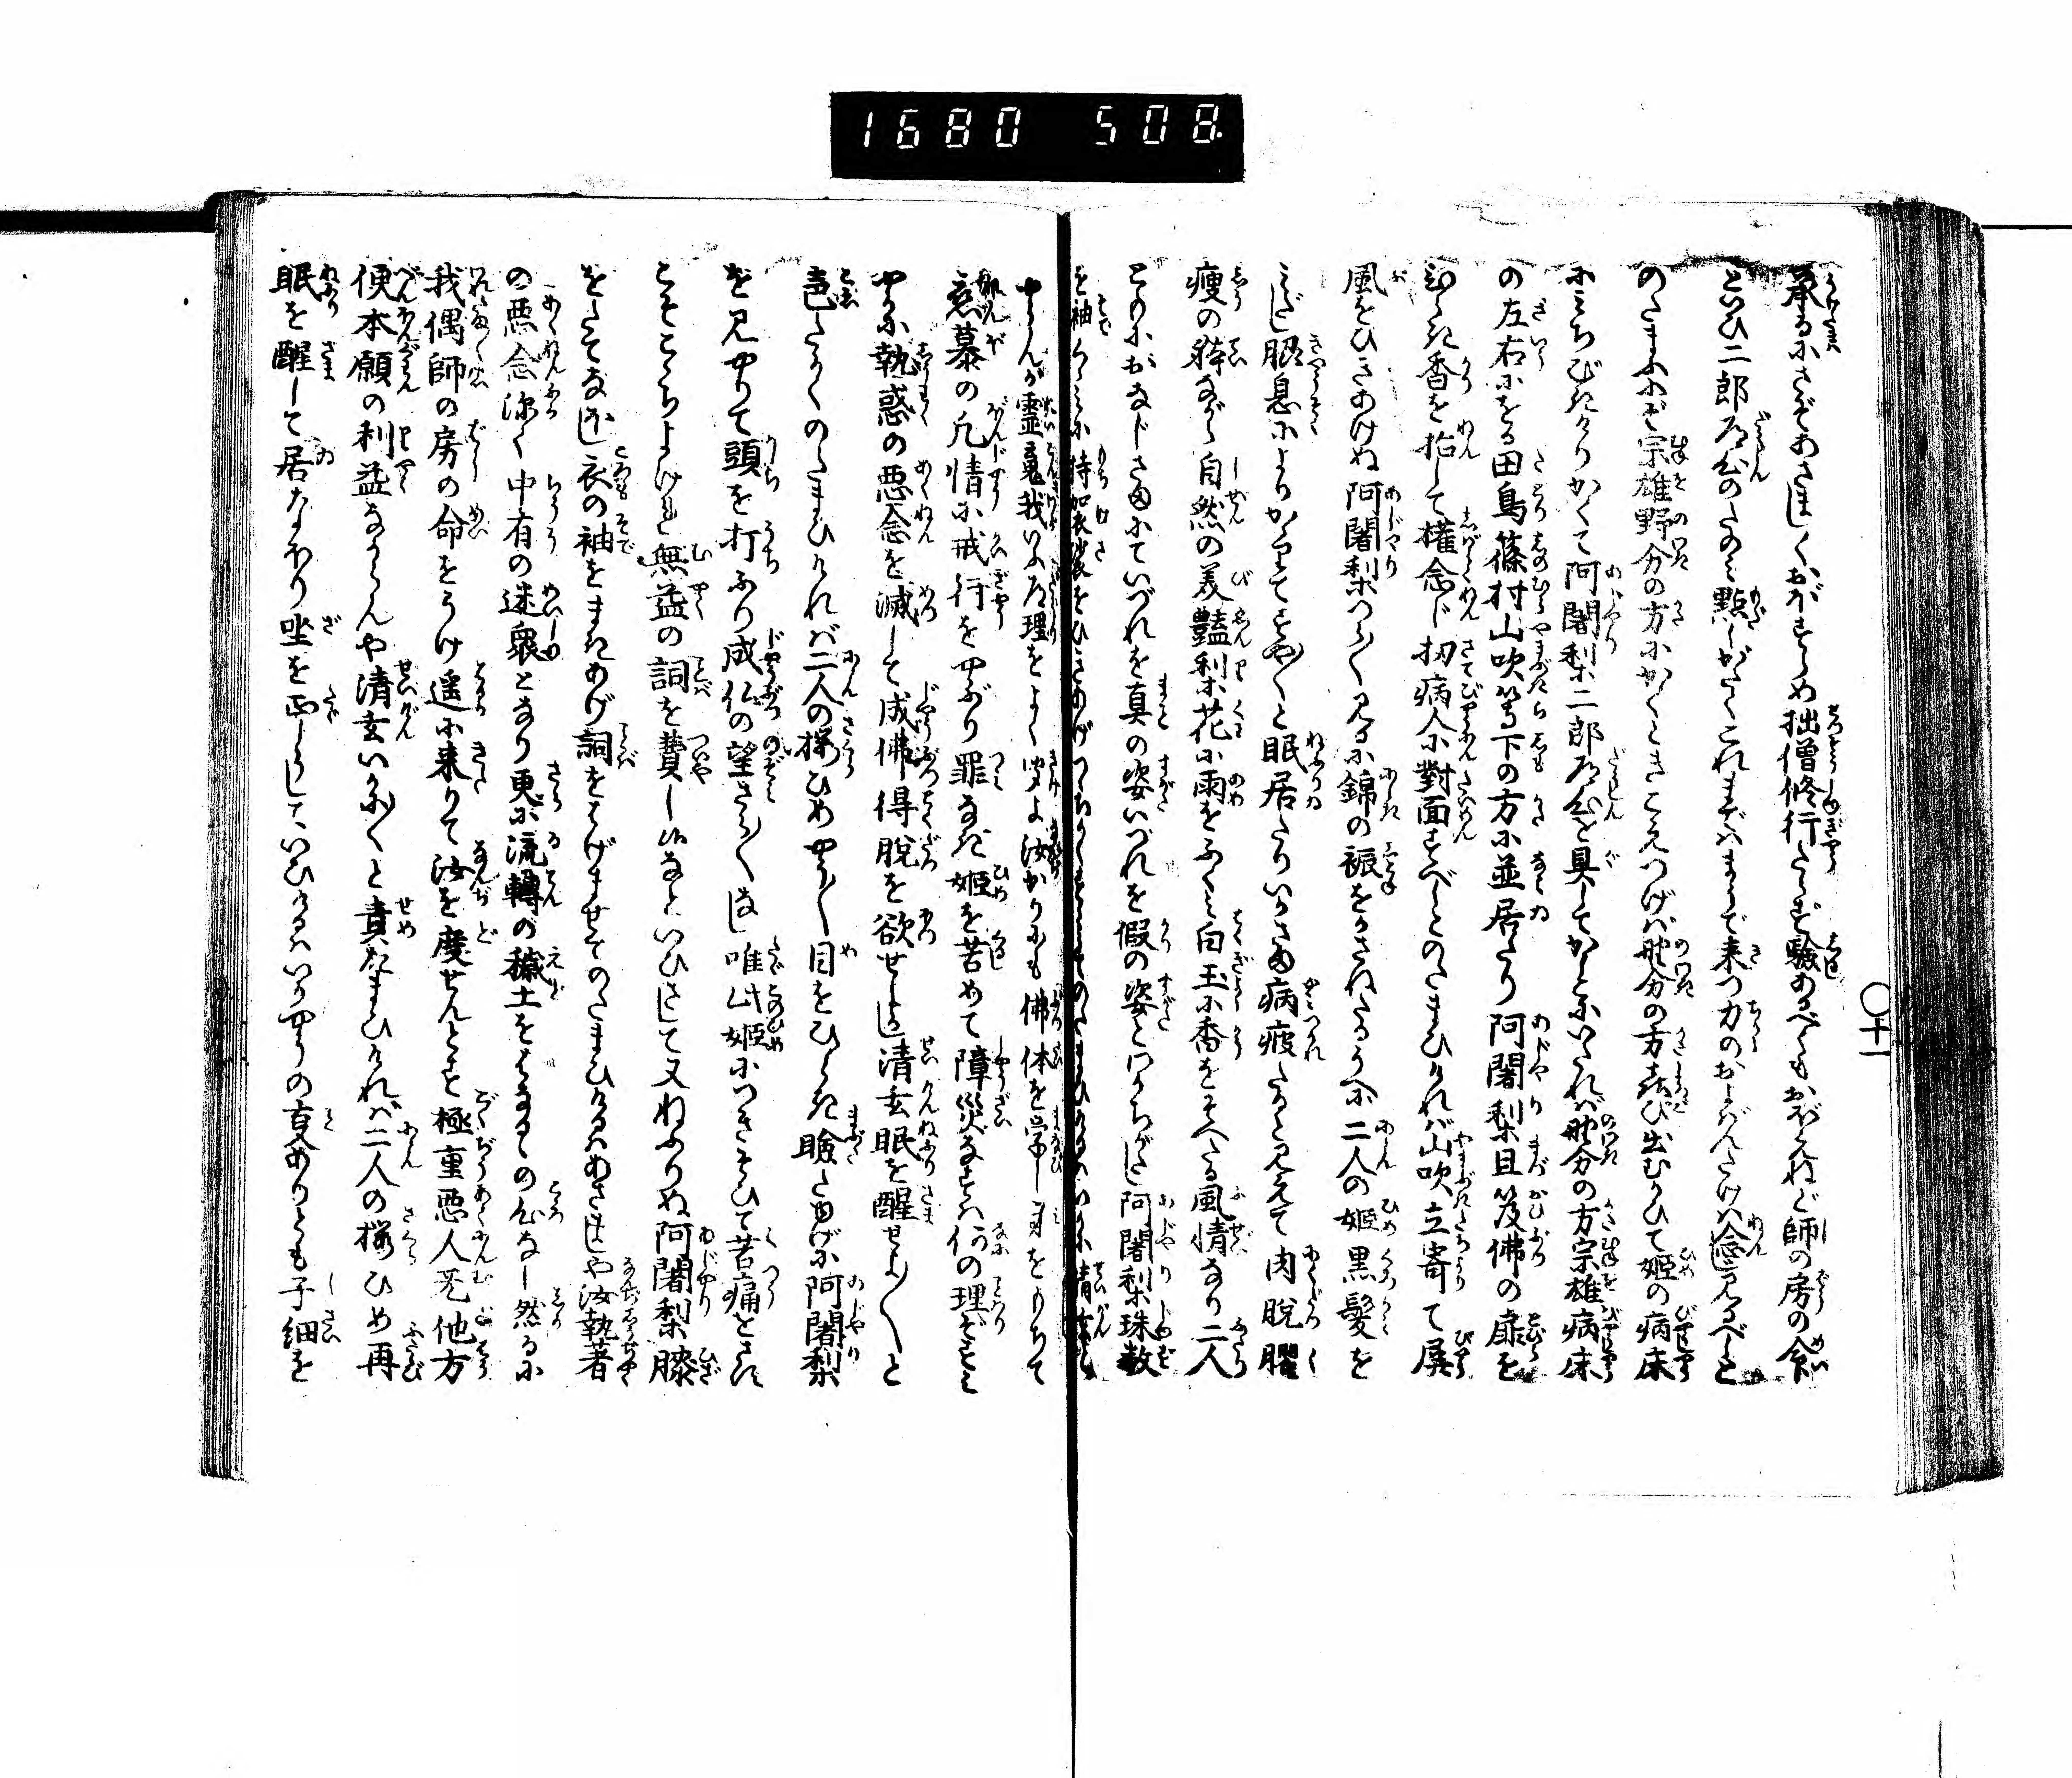 1680 508.
十一
承るにさぞあさましくおぼすらめ拙僧修行たらず験あるべくもおぼえねど師の房の命
といひ二郎左公のため黙しがたくこれまでまうで来つ力のおよばんたけは念じ見るべしと
のたまふにぞ宗雄野分の方にかくときこえつげバ野分の方喜び出むかひて姫の病床
にみちびきけりかくて阿闍梨二郎左公を具してかしこにいたれバ野分の方宗雄病床
の左右にをる田鳥篠村山吹等下の方に並居たり阿闍梨且笈佛の扉を
ひらき香を拈じて權念じ扨病人に對面すべしとのたまひけれバ山吹立寄て屏
風をひきあけぬ阿闍梨つら〳〵見るに錦の裖をかさねたるうへに二人の姫黒髪を
みだし脇息によりかゝりてすや〳〵と眠居たりいかさま病疲たりと見えて肉脱臞
痩の躰ながら自然の美豔梨花に雨をふくみ白玉に香をそへたる風情なり二人
このにおなじさまにていづれを真の姿いづれを假の姿とわかちがたし阿闍梨珠数
を袖くゝみに持袈裟をひきあげてちかくすゝみのたまひけるハいかに清玄
やらんが霊鬼我いふ道理をよく聞よ汝かりにも佛体を学し身をもちて
恋慕の凡情に戒行をやぶり罪なき姫を苦めて障災なすハ何の理ぞすみ
やかに執惑の悪念を滅して成佛得脱を欲せよ清玄眠を醒せよ〳〵と
声たかくのたまひけれバ二人の桜ひめやう〳〵目をひらき瞼たゆげに阿闍梨
を見やりて頭を打ふり成仏の望さら〳〵なし唯此姫につきそひて苦痛をさす
こそこゝちよけれ無益の詞を費し給なといひさして又ねふりぬ阿闍梨膝
をたてなほし衣の袖をまきあげ詞をはげませてのたまひけるハあさましや汝執著
の悪念深く中有の迷衆となり更に流轉の穢土をはなるゝの心なし然るに
我偶師の房の命をうけ遥に来りて汝を度せんとす極重悪人无他方
便本願の利益ならんや清玄いかに〳〵と責たまひけれバ二人の桜ひめ再
眠を醒して居なほり坐を正しうしていひけるハいかやうの変ありとも子細を